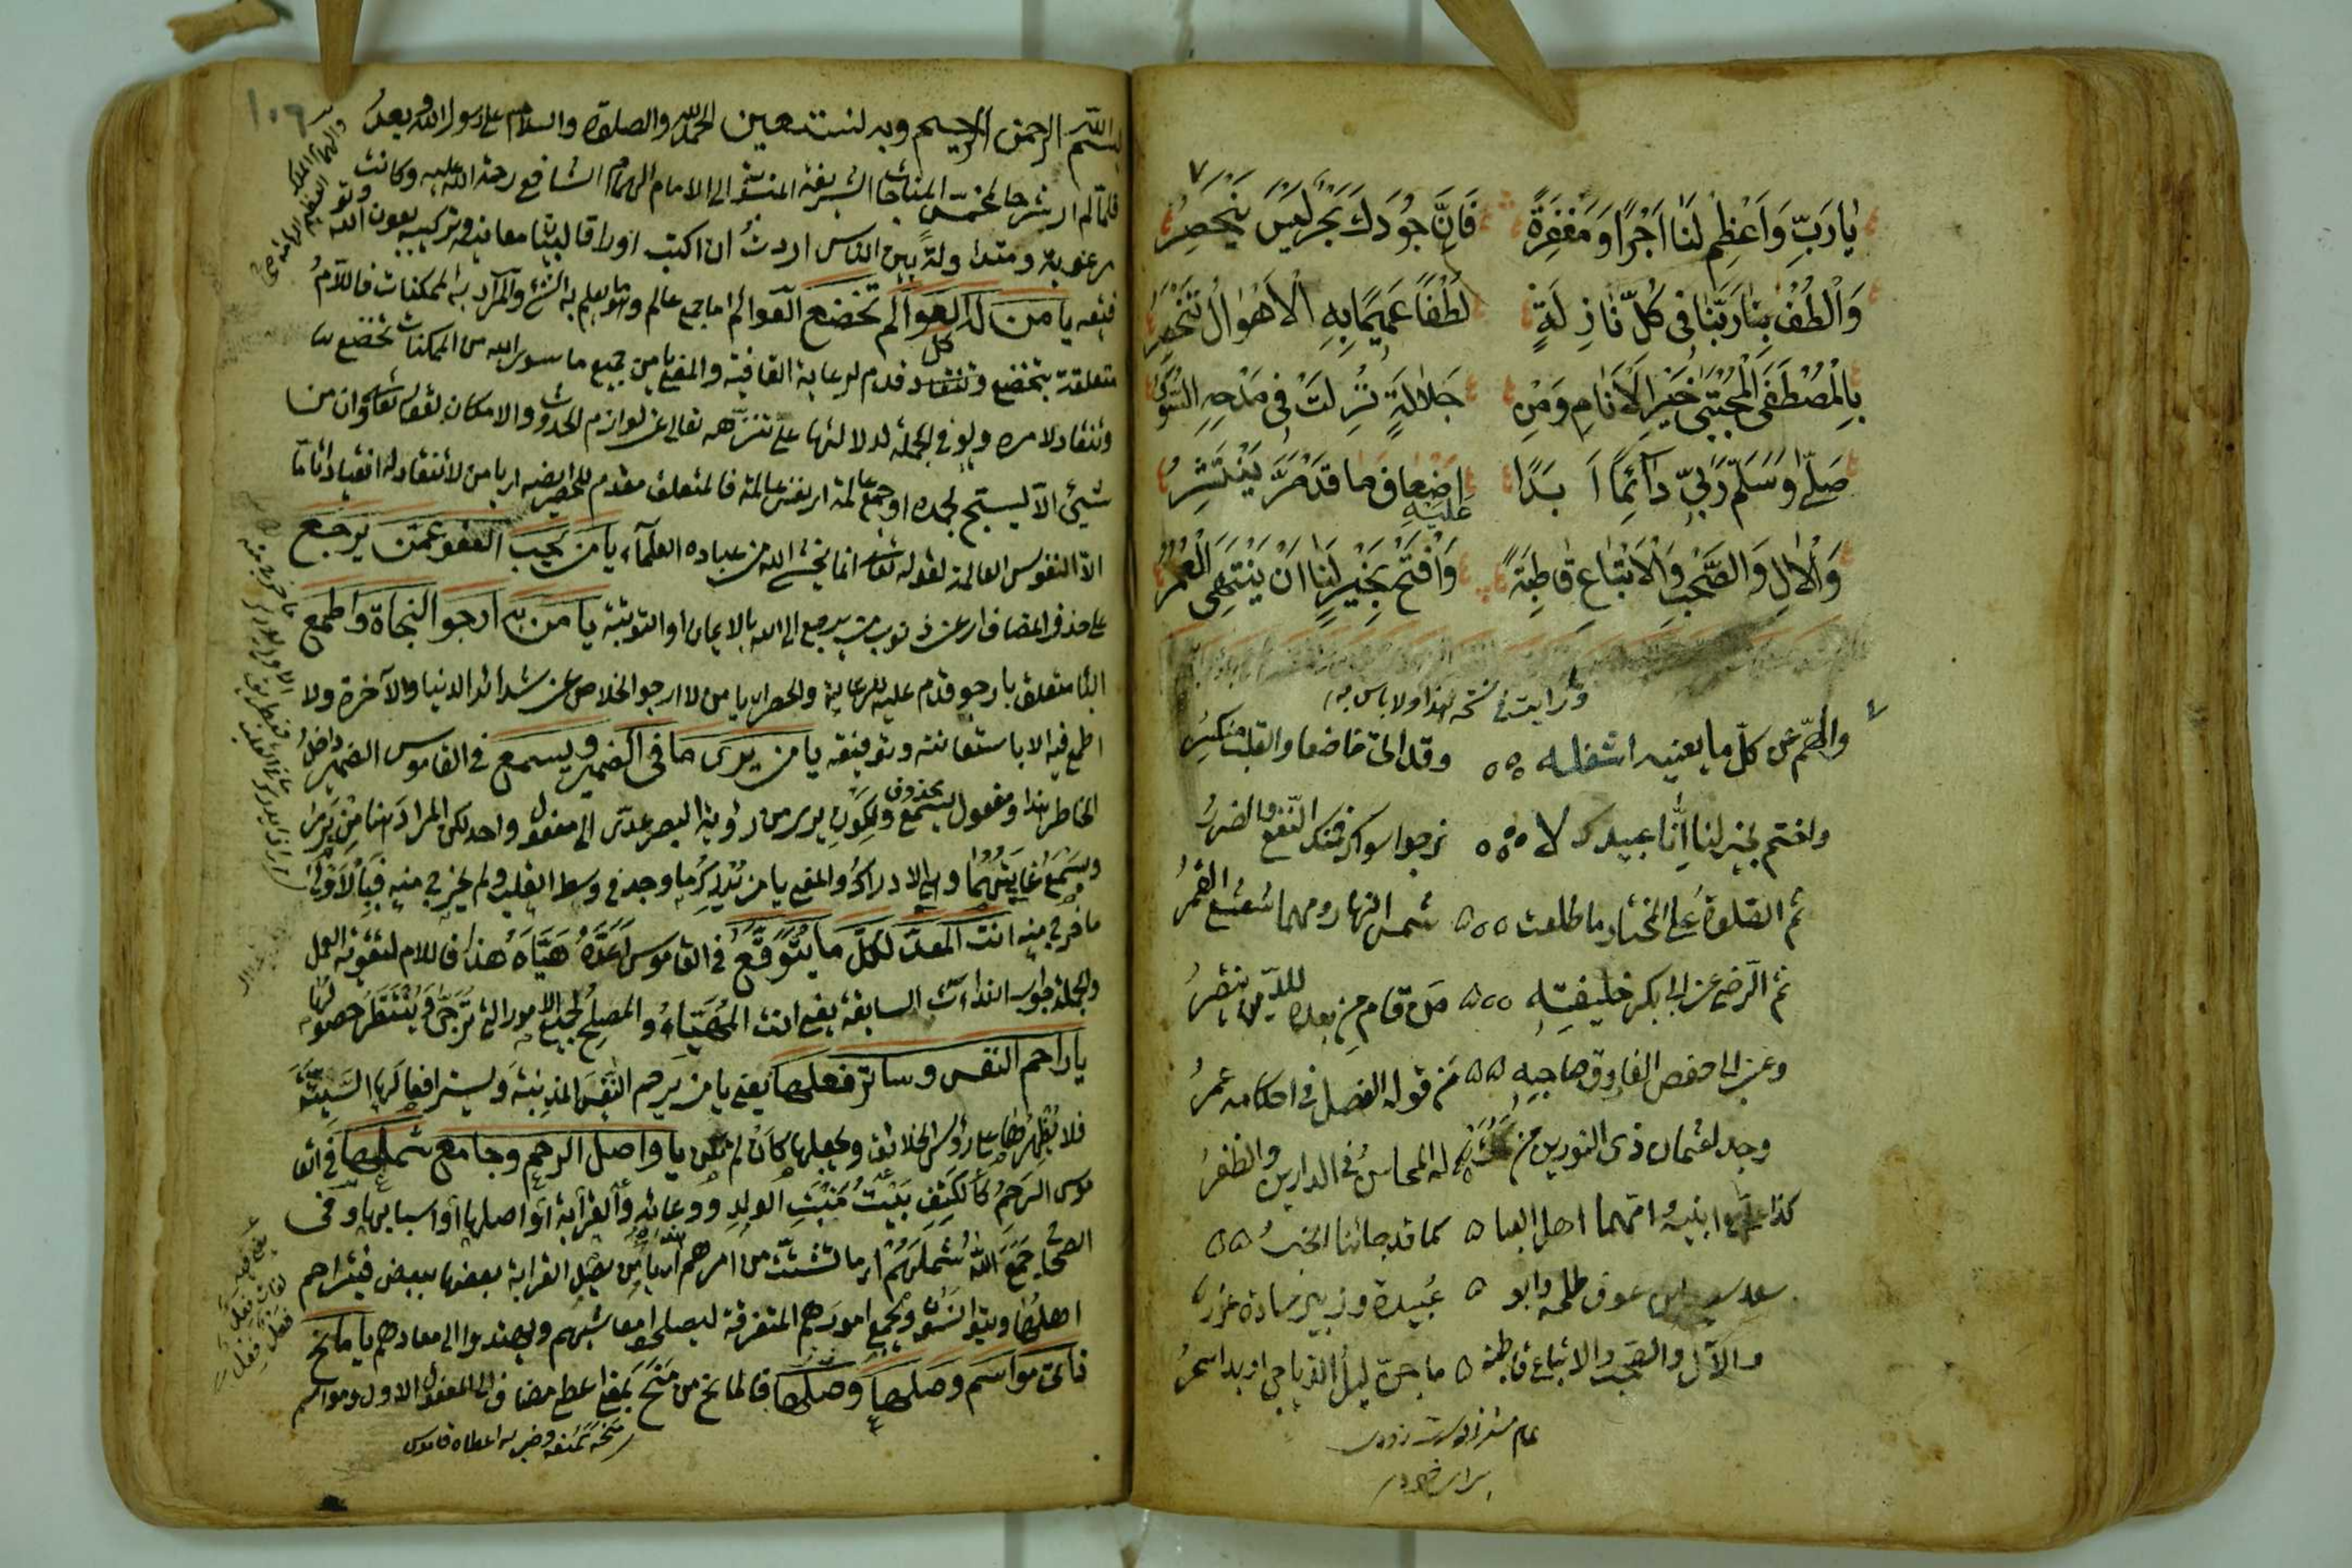 يَارَبِّ وَاَعْظِمْ لَنَا اَجْرًا وَمَغْفِرَةً فَاِنَّ جُودَكَ بَحْرٌ لَيْسَ يَنْحَصِرُ
وَالْطُفْ بِنَا رَبَّنَا فِى كُلِّ نَازِلَةٍ لُطْفًا عَمِيمًا بِهِ الْاَهْوَالُ تَنْحَصِرُ
بِالْمُصْطَفَى الْمُجْتَبَى خَيْرِ الْاَنَامِ وَمَنْ جَلَالَةً نُزِلَتْ فِى مَدْحِهِ السُّوَرُ
صَلِّ وَسَلِّمْ رَبِّى دَآئِمًا اَبَدًا عَلَيْهِ اَضْعَافَ مَا قَدْ مَرَّ يَنْتَشِرُ
وَالْآلِ وَالصَّحْبِ وَالْاَتْبَاعِ قَاطِبَةً وَافْتَحْ بِخَيْرٍ لَنَا اَنْ يَنْتَهِى الْعُمُرُ
ورايت فى نسخة هذا ولا باس به
والطّم عن كلّ ما يعنيه اشغله وقد اتى خاضعا والقلب منكسِرُ
واختم بخير لنا اِنّا عبيدك لا نرجوا سواك فمنك النّفع والضررُ
ثم الصّلوة على المختار ما طلعت شمس النهار ومهما شعشع القمرُ
ثم الرّضى عن ابى بكر خليفتِه من قام من بعده للدّين ينتصرُ
وعن ابى حفص الفاروق صاحبه مَن قوله الفصل فى احكامه عمرُ
وجد لعثمان ذى النورين من له المحاسنُ فى الدارين والظفرُ
كذا على وابنيه وامّهما اهل العبا كما قد جائنا الخبرُ
سعد سعيد ابن عوف طلحة وابو عُبيدة وزبير سادة غررُ
والآل والصّحب والاتباع قاطبة ما جنّ ليلُ الدّياجى او بدا سحرُ
١٠٩
بسم الله الرحمن الرحيم وبه نستعين الحمد لله والصلوة والسلام على رسول الله وبعدُ
فلمّا لم ار شرحا لمخمّس المناجات الشريفة المنسوبة الى الامام الهمام الشافعى رحمة الله عليه وكانت
مرغوبة ومتداولة بين الناس اردتُ ان اكتب اوراقا لبيان معانيه وتركيبه بعون الله وتوفيقه
يا من له العوالم تخضع العوالم اما جمع عالم وهو ما يعلم به الشئ والمراد به الممكنات فاللام
متعلقة بتخضع وتنقاد قدم لرعاية القافية والمعنى يا من جميع ما سوى الله من الممكنات تخضع له
وتنقاد لامره ولو فى الجملة لدلالتها على تنزّهه تعالى عن لوازم الحدوث والامكان لقوله تعالى وان من
شيئ الّا يسبّح بحمده او جمع عالمة اى نفس عالمة فالمتعلق مقدم للحصر ايضا اى يا من لا تنقاد له انقيادا تامّا
الّا النفوس العالمة لقوله تعالى انما يخشى الله من عباده العلمآء يا من يحب العفو عمّن يرجع
على حذف المضاف اى عن ذنوب من يرجع الى الله بالايمان او التوبة يا من به ارجو النجاة واطمع
البا متعلق بارجو قدم عليه للرعاية والحصر اى يا من لا ارجو الخلاص عن شدائد الدنيا والآخرة ولا
اطمع فيه الا باستعانته وتوفيقه يا من يرى ما فى الضمير ويسمع فى القاموس الضمير داخلُ
الخاطر هذا ومفعول يسمع محذوف ولكون يرى من رؤية البصر عدّى الى مفعول واحد لكن المراد هنا من يرى
ويسمع غايتهما وهى الادراك والمعنى يا من يُدرك ما وجد فى وسط القلب ولم يخرج منه
ما خرج منه انت المعدّ لكلّ ما يتوقّع فى القاموس اَعَدَّهُ هَيَّأَهُ هذا فاللام لتقوية العمل
والجملة جواب النداءات السابقة يعنى انت المُهيّئ والمصلح لجميع الامور التى تُرجّى ويُنتظر حصولها
يا راحم النفس وساتر فعلها يعنى يا من يرحم النفس المذنبة ويستر افعالها السّيّئة
فلا يظهرها على رؤس الخلائق ويجعلها كأن لم تكن يا واصل الرحم وجامع شملها فى القا
موس الرحم كالكتف بَيْتُ مَنْبَتِ الولدِ ووعائه والقرابة او اصلها او اسبابها وفى
الصحاح جمع الله شملهم اى ما تشتّت من امرهم اى يا من يصل القرابة بعضها ببعض فيتراحم
اهلها ويجمع امورهم المتفرقة ليصلحوا معاشهم ويهتدوا الى معادهم يا مانح
وصلها فالمانح من مَنَحَ بمعنى اعطى مضاف الى المفعول الاول ومواسم
منحه كمنعه وضربه اعطاه قاموس